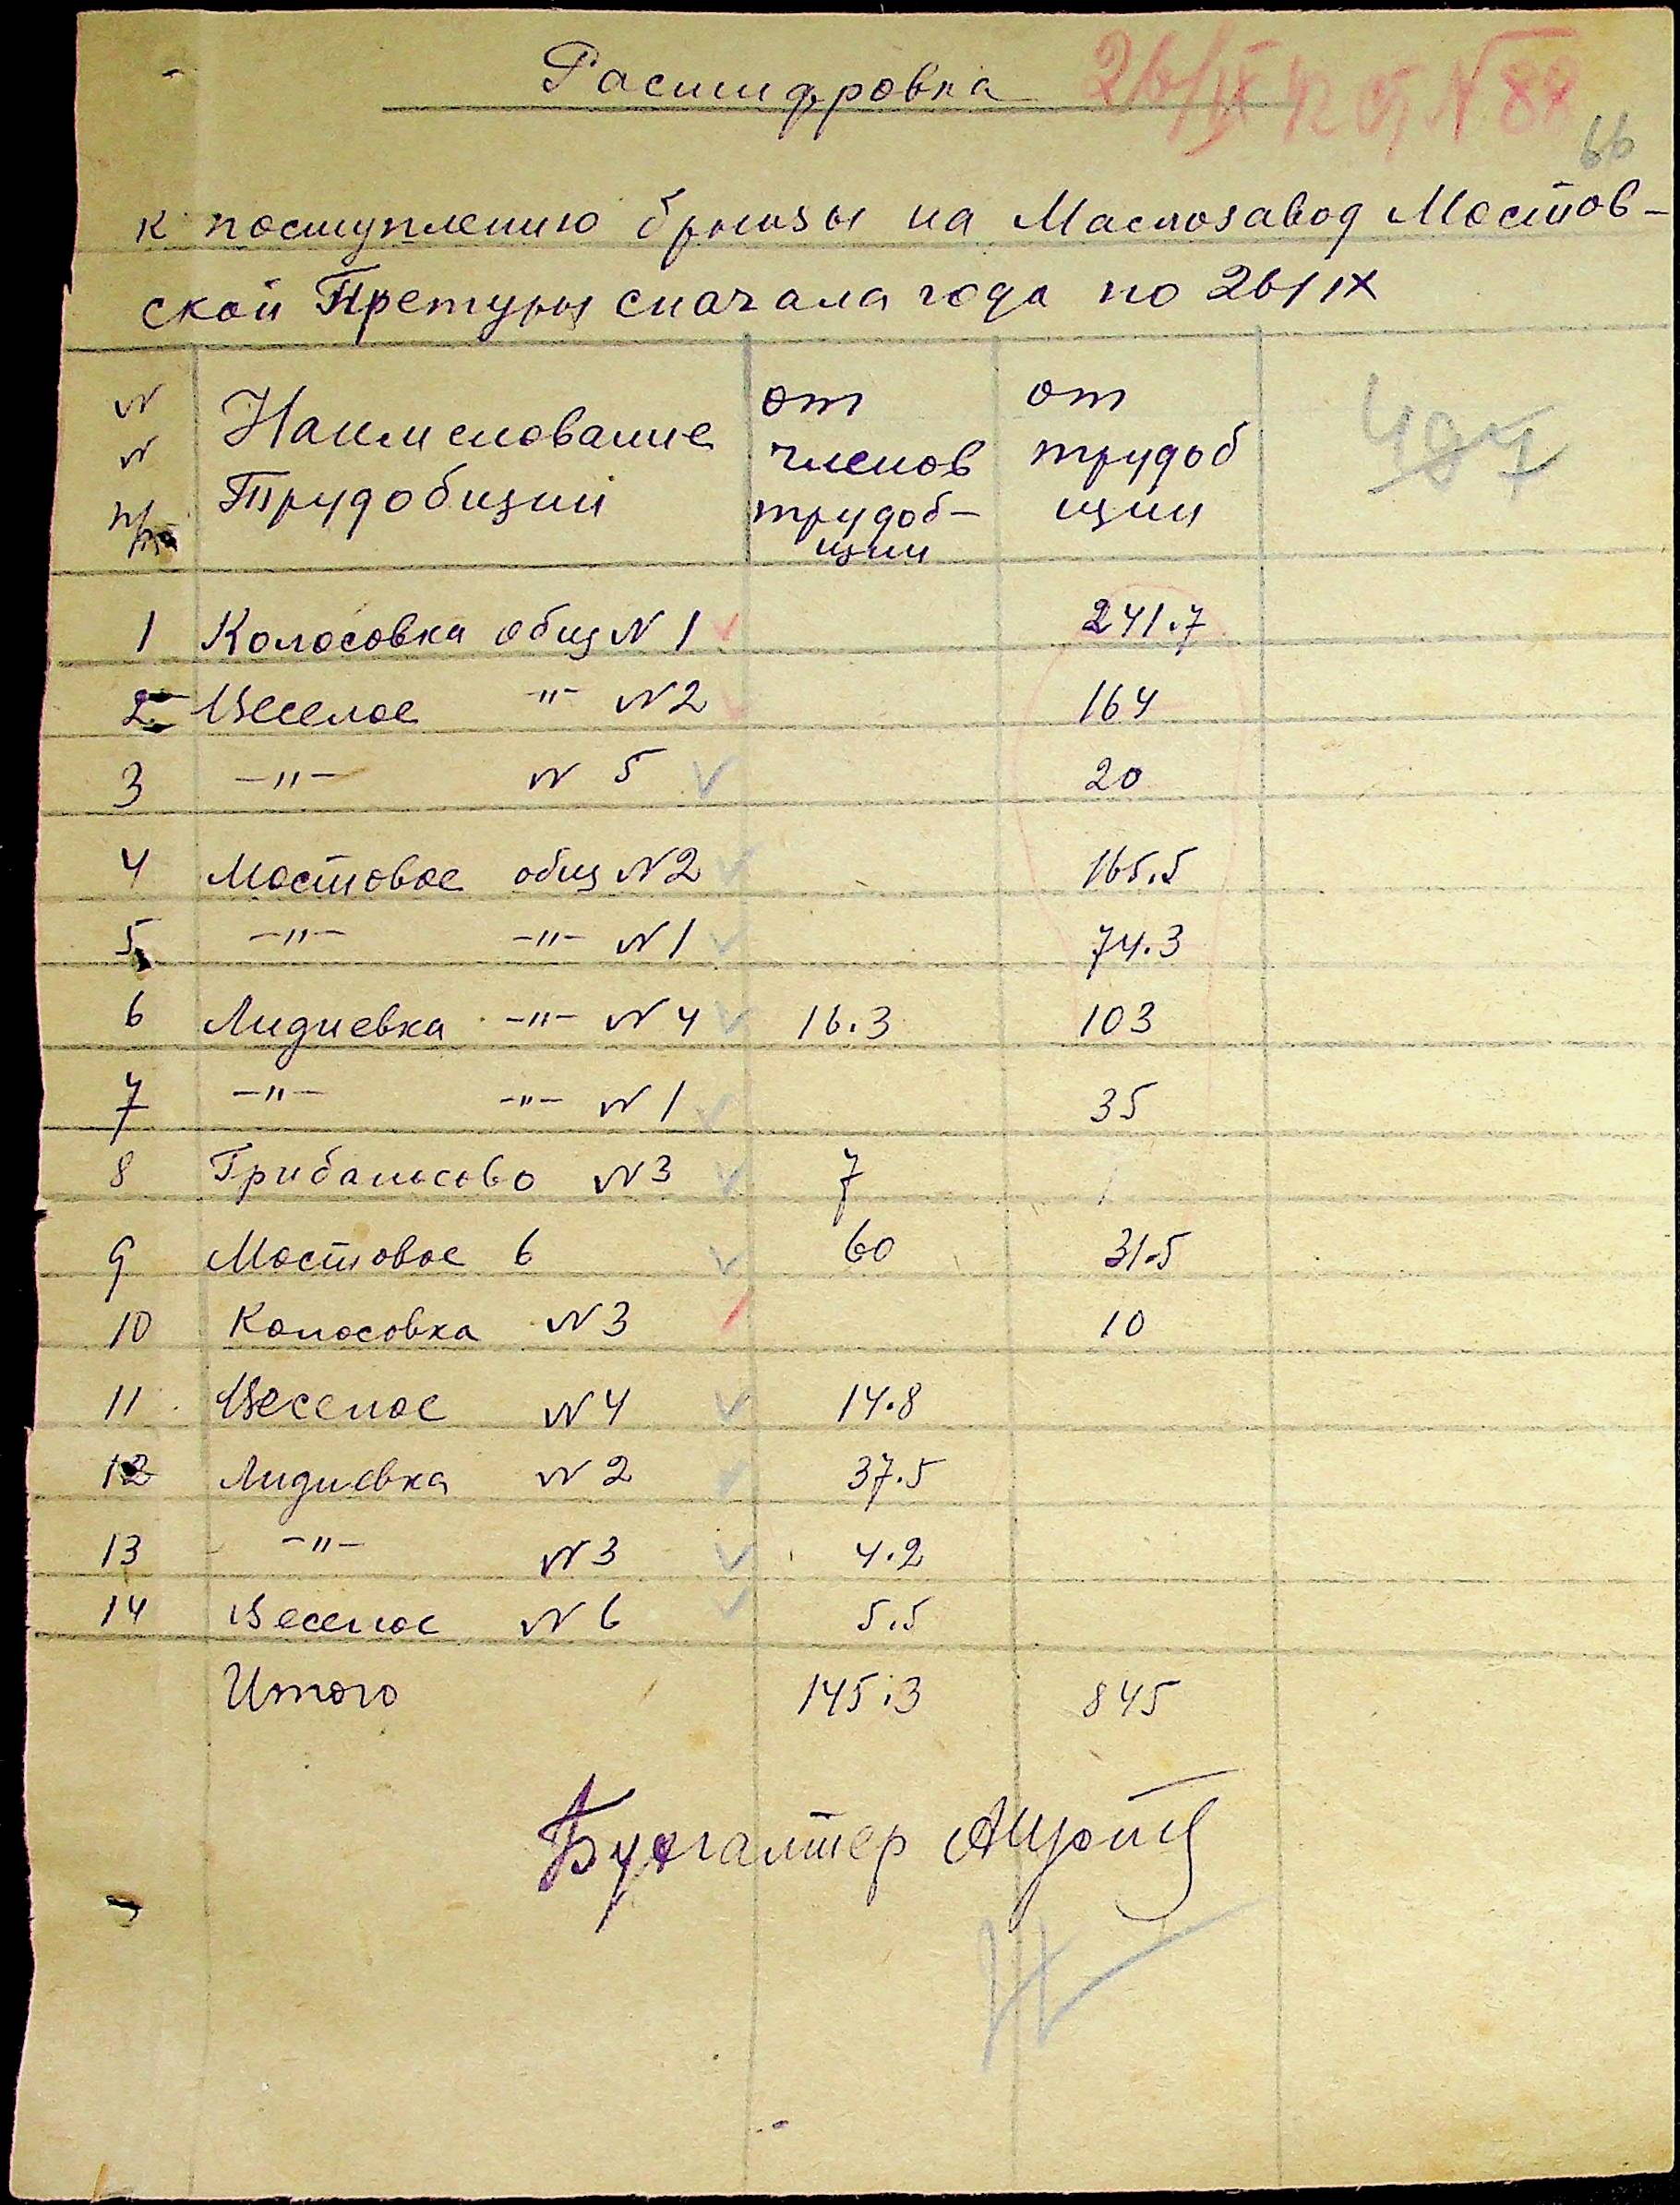 Расшифровка
66
к поступлению брынзы на Маслозавод Мостов-
ской Претуры сначала года по 26/IX
N N п/п Наименование Трудобщин от членов трудоб-щин от трудобщин
1 Колосовка общ N 1 241.7
2 Веселое -"- N 2 164
3 -"- N 5 20
4 Мостовое общ N 2 165.5
5 -"- -"- N 1 74.3
6 Лидиевка -"- N 4 16.3 103
7 -"- -"- N 1 35
8 Грибаносово N 3 7
9 Мостовое 6 60 31.5
10 Колосовка N 3 10
11 Веселое N 4 14.8
12 Лидиевка N 2 37.5
13 -"- N 3 4.2
14 Веселое N 6 5.5
Итого 145.3 845
Бухгалтер